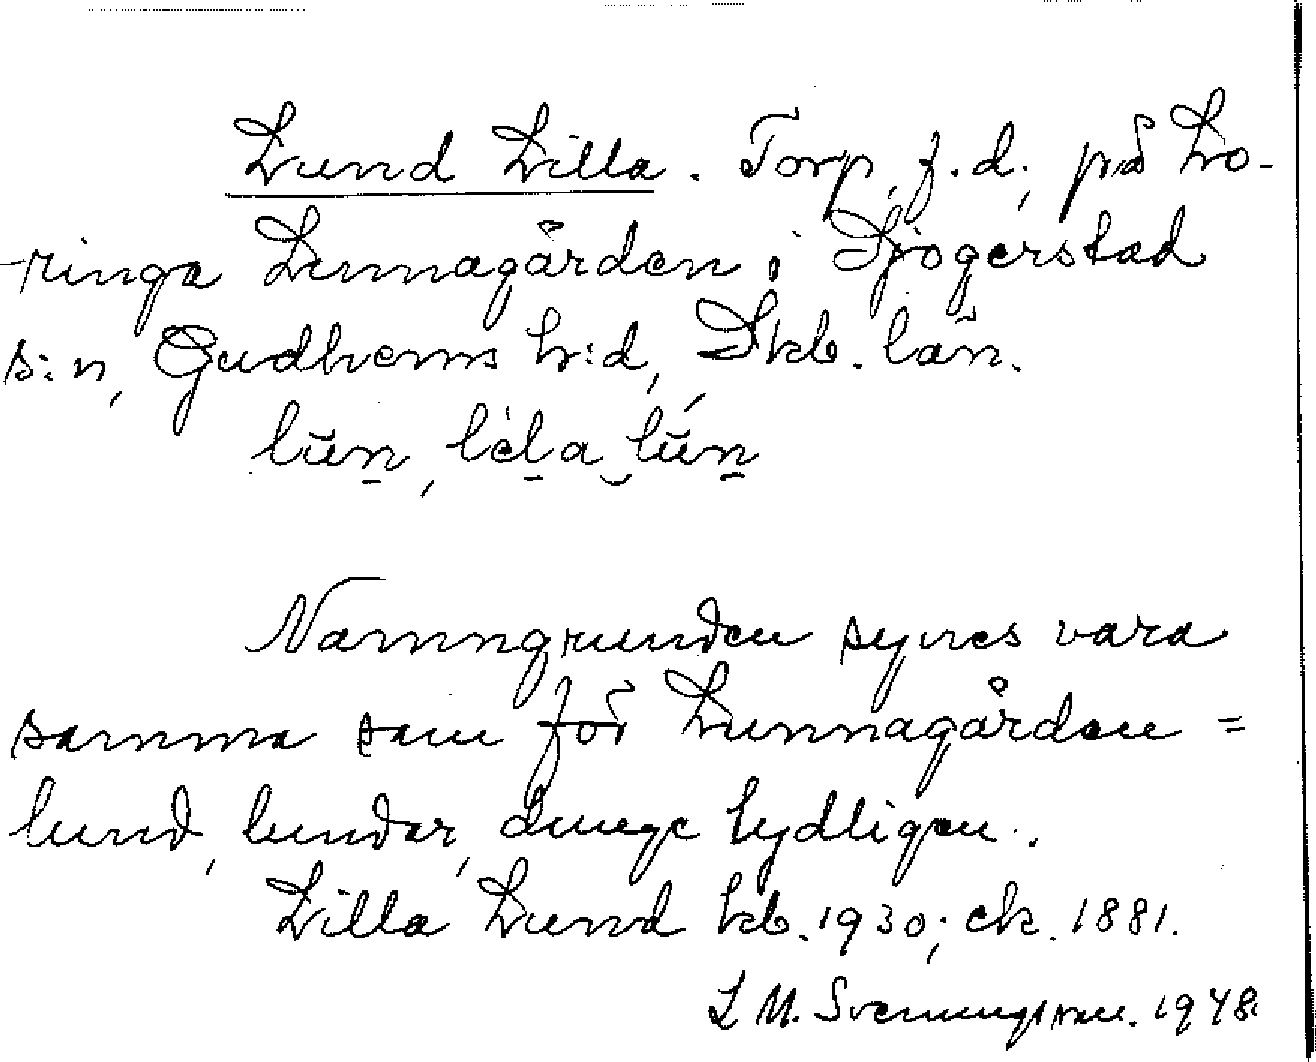 Lund Lilla. Torp, f.d., på Lo-
ringa Lunnagården i Sjogerstad
s:n, Gudhems h:d, Skb. län.
lūn̲, lèl̲a‿lū́n̲
Namngrunden synes vara
samma som för Lunnagården =
lund, lundar, dunge tydligen.
Lilla Lund kb. 1930; ek. 1881.
L M. Svenungsson. 1948.